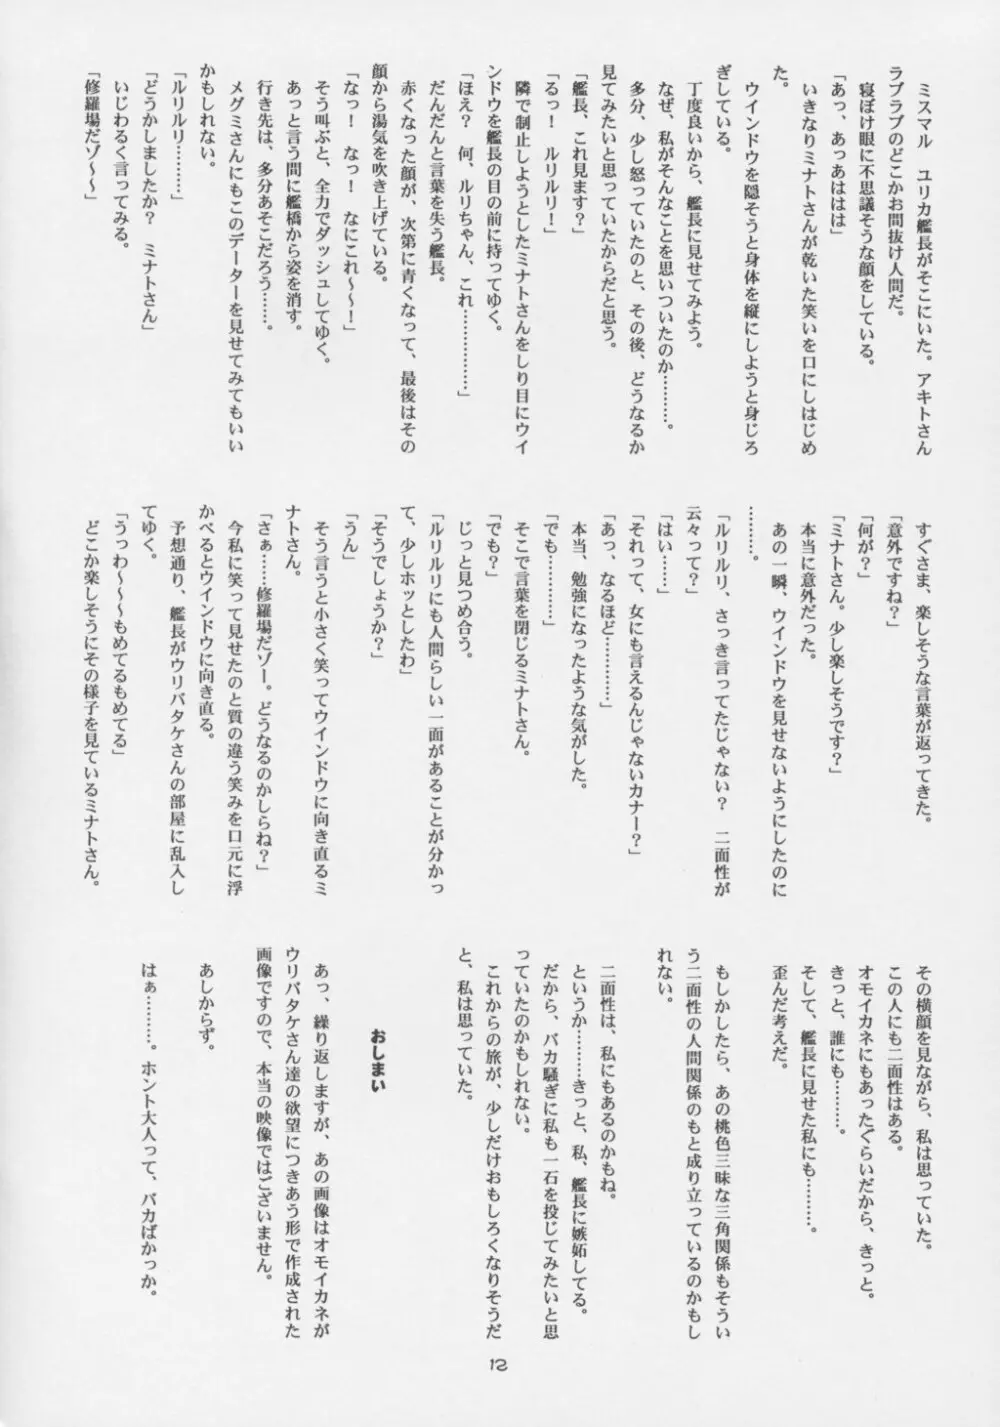 ミスマル　ユリカ艦長がそこにいた。アキトさん
ラブラブのどこかお間抜け人間だ。
　寝ぼけ眼に不思議そうな顔をしている。
「あっ、あっあははは」
　いきなりミナトさんが乾いた笑いを口にしはじめ
た。
　ウインドウを隠そうと身体を縦にしようと身じろ
ぎしている。
　丁度良いから、艦長に見せてみよう。
　なぜ、私がそんなことを思いついたのか………。
　多分、少し怒っていたのと、その後、どうなるか
見てみたいと思っていたからだと思う。
「艦長、これ見ます？」
「るっ！　ルリルリ！」
　隣で制止しようとしたミナトさんをしり目にウイ
ンドウを艦長の目の前に持ってゆく。
「ほえ？　何、ルリちゃん、これ……………」
　だんだんと言葉を失う艦長。
　赤くなった顔が、次第に青くなって、最後はその
顔から湯気を吹き上げている。
「なっ！　なっ！　なにこれ～～！」
　そう叫ぶと、全力でダッシュしてゆく。
　あっと言う間に艦橋から姿を消す。
　行き先は、多分あそこだろう……。
　メグミさんにもこのデーターを見せてみてもいい
かもしれない。
「ルリルリ………」
「どうかしましたか？　ミナトさん」
　いじわるく言ってみる。
「修羅場だゾ～～」
　すぐさま、楽しそうな言葉が返ってきた。
「意外ですね？」
「何が？」
「ミナトさん。少し楽しそうです？」
　本当に意外だった。
　あの一瞬、ウインドウを見せないようにしたのに
………。
「ルリルリ、さっき言ってたじゃない？　二面性が
云々って？」
「はい……」
「それって、女にも言えるんじゃないカナー？」
「あっ、なるほど…………」
　本当、勉強になったような気がした。
「でも……………」
　そこで言葉を閉じるミナトさん。
「でも？」
　じっと見つめ合う。
「ルリルリにも人間らしい一面があることが分かっ
て、少しホッとしたわ」
「そうでしょうか？」
「うん」
　そう言うと小さく笑ってウインドウに向き直るミ
ナトさん。
「さぁ……修羅場だゾー。どうなるのかしらね？」
　今私に笑って見せたのと質の違う笑みを口元に浮
かべるとウインドウに向き直る。
　予想通り、艦長がウリバタケさんの部屋に乱入し
てゆく。
「うっわ～～～もめてるもめてる」
　どこか楽しそうにその様子を見ているミナトさん。
　その横顔を見ながら、私は思っていた。
　この人にも二面性はある。
　オモイカネにもあったぐらいだから、きっと。
　きっと、誰にも………。
　そして、艦長に見せた私にも………。
　歪んだ考えだ。
　もしかしたら、あの桃色三昧な三角関係もそうい
う二面性の人間関係のもと成り立っているのかもし
れない。
　二面性は、私にもあるのかもね。
　というか………きっと、私、艦長に嫉妬してる。
　だから、バカ騒ぎに私も一石を投じてみたいと思
っていたのかもしれない。
　これからの旅が、少しだけおもしろくなりそうだ
と、私は思っていた。
おしまい
　あっ、繰り返しますが、あの画像はオモイカネが
ウリバタケさん達の欲望につきあう形で作成された
画像ですので、本当の映像ではございません。
　あしからず。
　はぁ………。ホント大人って、バカばかっか。
12